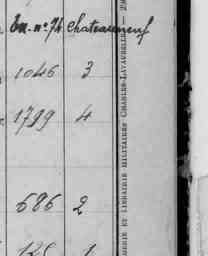 En. nº 74 Chateauneuf
1046 3
1799 4
686 2
126 1
MERIE ET LIBRAIRIE MILITAIRES CHARLES-LAVAUZELLE — 29